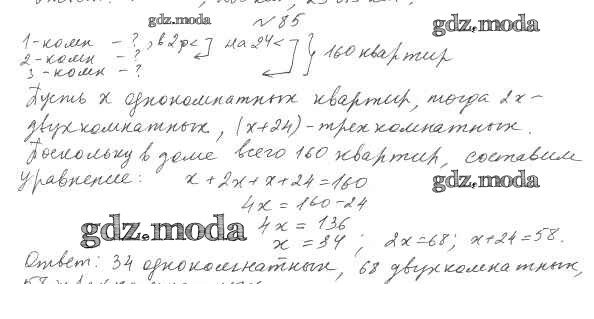 gdz.moda
№ 85
gdz.moda
1-комн - ?, в 2р< на 24<
2-комн - ? 160 квартир
3-комн - ?
Пусть x однокомнатных квартир, тогда 2x-
двухкомнатных, (x+24)-трехкомнатных.
Поскольку в доме всего 160 квартир, составим
уравнение: x+2x+x+24=160
gdz.moda
4x = 160-24
gdz.moda
4x = 136
x = 34 ; 2x=68; x+24=58.
Ответ: 34 однокомнатных, 68 двухкомнатных,